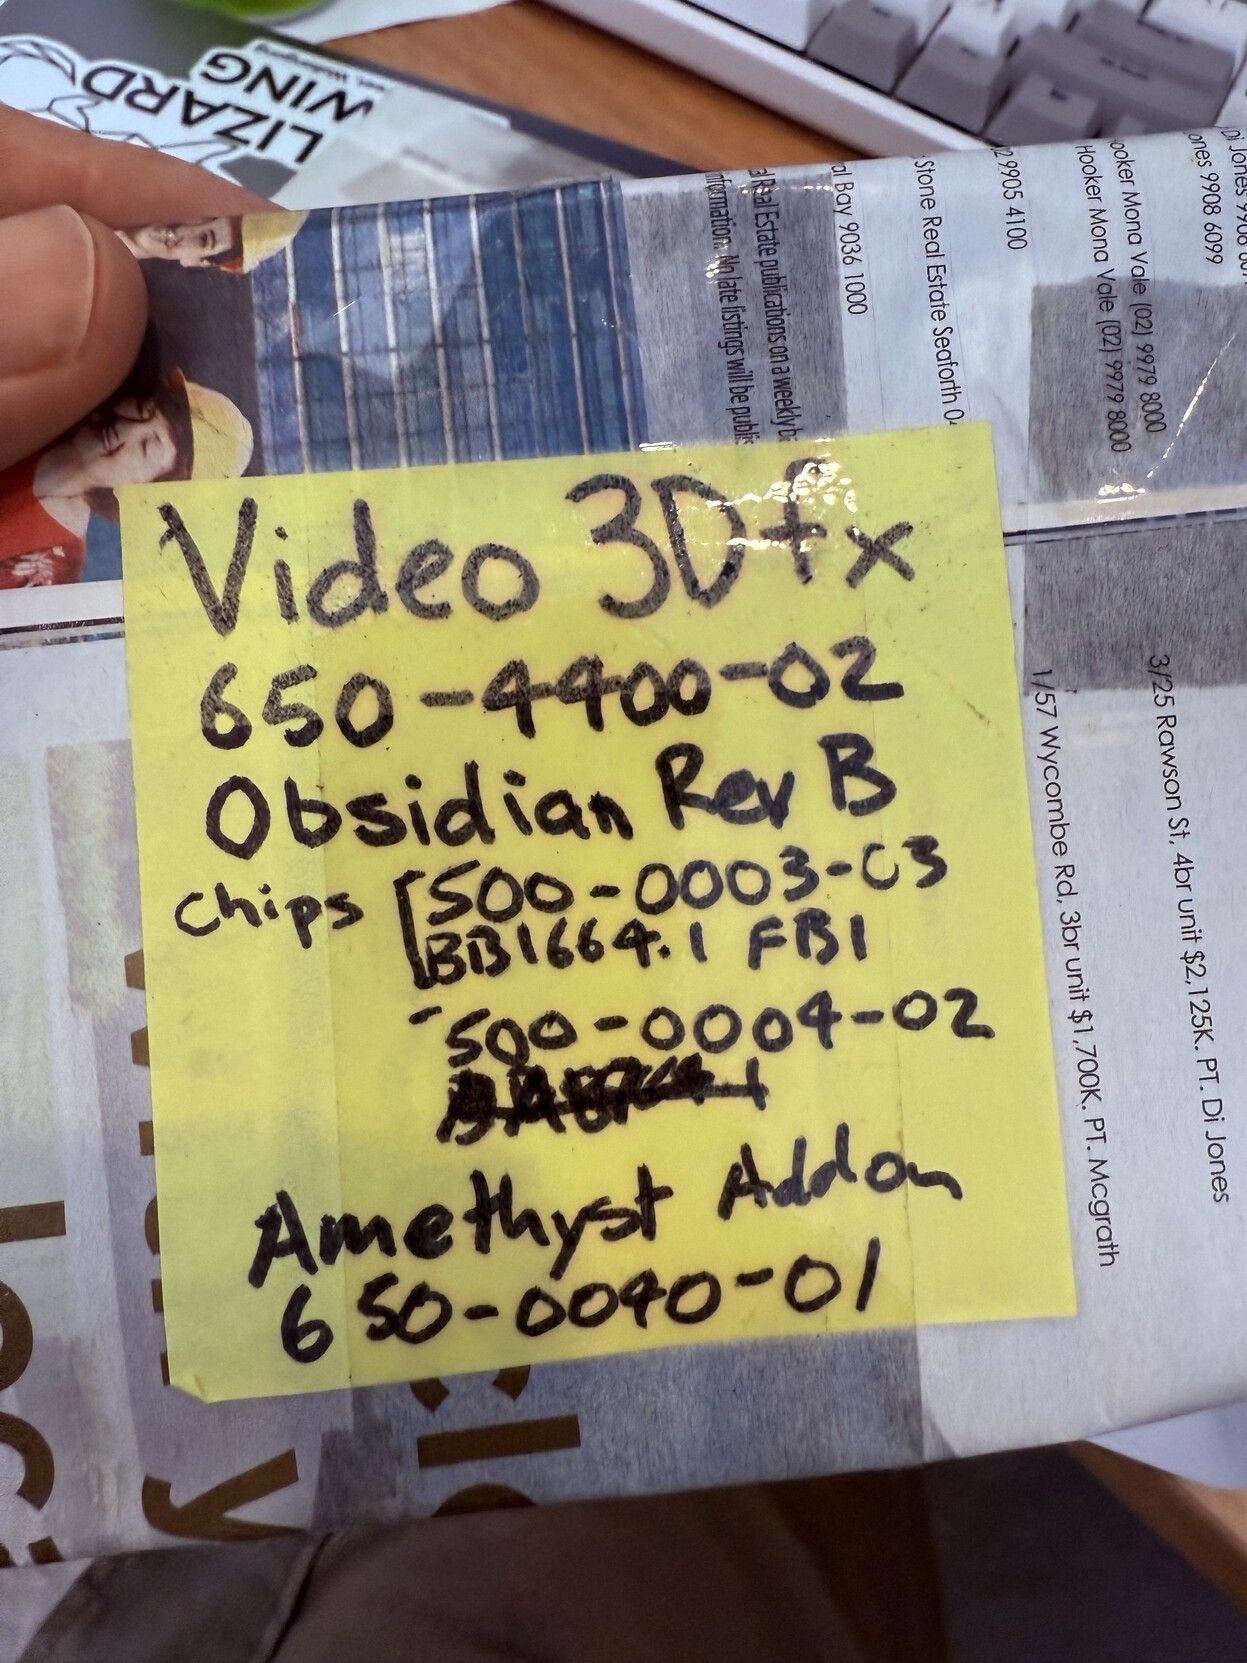 LIZARD
WING
al Real Estate publications on a weekly ba
nformation. No late listings will be publis
al Bay 9036 1000
Stone Real Estate Seaforth 04
2 9905 4100
ooker Mona Vale (02) 9979 8000
Hooker Mona Vale (02) 9979 8000
ones 9908 6099
Di Jones 9908
3/25 Rawson St, 4br unit $2,125K. PT. Di Jones
1/57 Wycombe Rd, 3br unit $1,700K. PT. Mcgrath
Video 3Dfx
650-4400-02
Obsidian Rev B
Chips [500-0003-03
BB1664.1 FBI
-500-0004-02
Amethyst Addon
650-0040-01